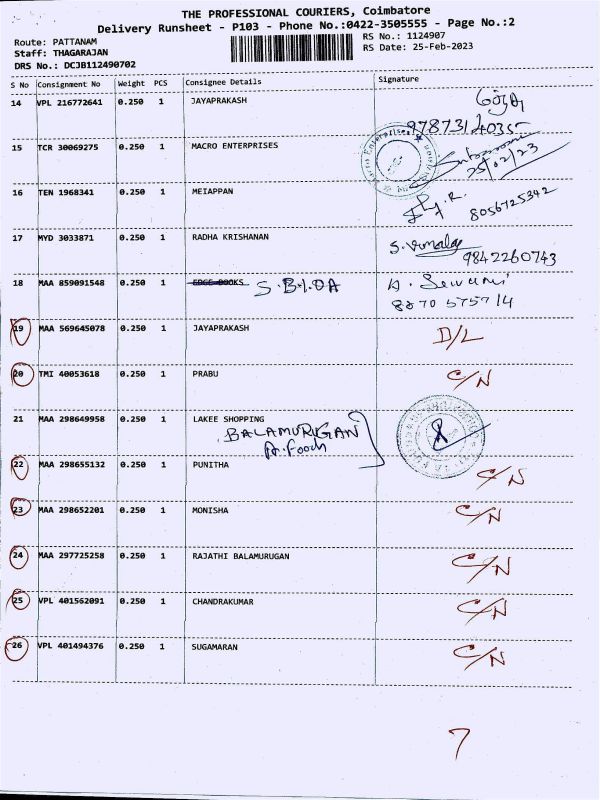 THE PROFESSIONAL COURIERS, Coimbatore
Delivery Runsheet - P103 - Phone No.:0422-3505555 - Page No.:2
Route: PATTANAM
RS No.: 1124907
Staff: THAGARAJAN
RS Date: 25-Feb-2023
DRS No.: DCJB112490702
S No Consignment No Weight PCS Consignee Details Signature
14 VPL 216772641 0.250 1 JAYAPRAKASH
15 TCR 30069275 0.250 1 MACRO ENTERPRISES
25/02/23
16 TEN 1968341 0.250 1 MEIAPPAN
8056725342
17 MYD 3033871 0.250 1 RADHA KRISHANAN S. Vimala
9842260743
18 MAA 859091548 0.250 1 EDGE BOOKS S.B.I.O.A
8870 575714
19 MAA 569645078 0.250 1 JAYAPRAKASH D/L
20 TMI 40053618 0.250 1 PRABU C/N
21 MAA 298649958 1 0.250 1 LAKEE SHOPPING
BALAMURUGAN
22 MAA 298655132 0.250 1 PUNITHA C/N
23 MAA 298652201 0.250 1 MONISHA C/N
24 MAA 297725258 0.250 1 RAJATHI BALAMURUGAN C/N
25 VPL 401562091 0.250 1 CHANDRAKUMAR C/N
26 VPL 401494376 0.250 1 SUGAMARAN C/N
7